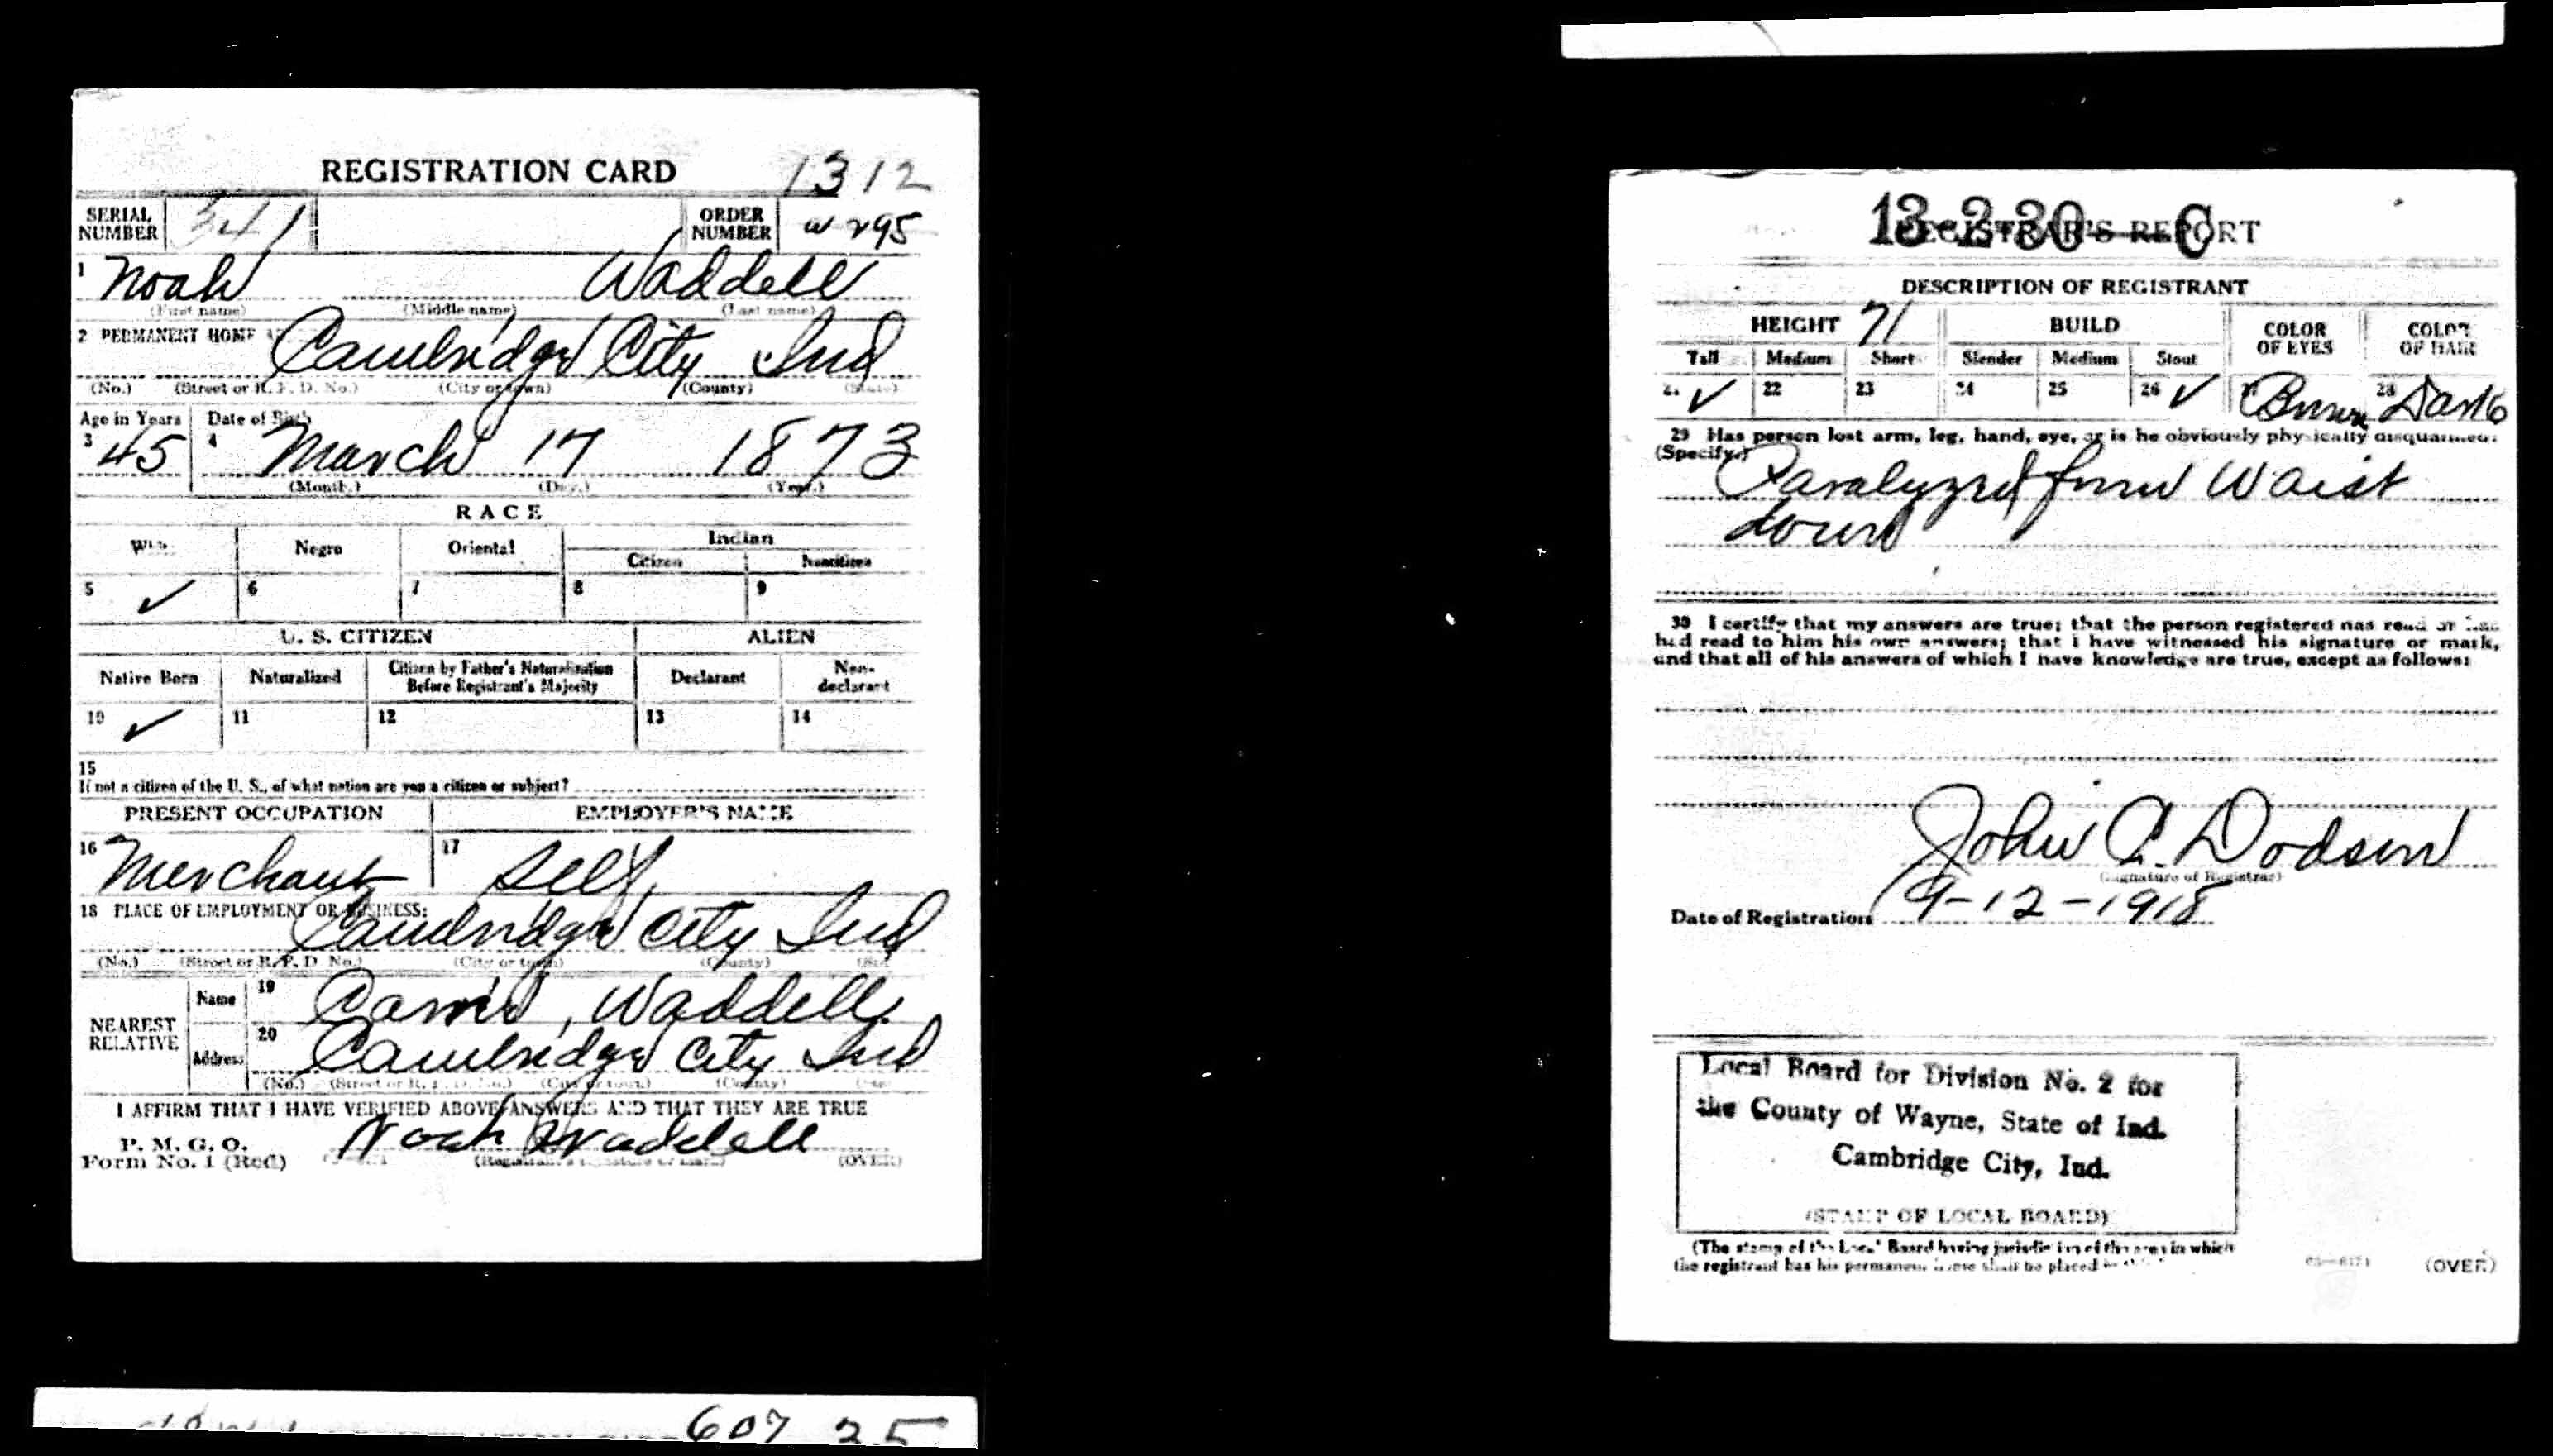 REGISTRATION CARD 1312
SERIAL NUMBER 341 ORDER NUMBER 295
1 Noah Waddell
(First name) (Middle name) (Last name)
2 PERMANENT HOME Cambridge City Ind
(No.) (Street or R. F. D. No.) (City or town) (County) (State)
Age in Years Date of Birth
3 45 4 March 17 1873
(Month.) (Day.) (Year.)
RACE
Negro Oriental Indian
Citizen Noncitizen
5 ✓ 6 7 8 9
U. S. CITIZEN ALIEN
Native Born Naturalized Citizen by Father's Naturalization Before Registrant's Majority Declarant Non-declarant
10 ✓ 11 12 13 14
15
If not a citizen of the U. S., of what nation are you a citizen or subject?
PRESENT OCCUPATION EMPLOYER'S NAME
16 Merchant 17 Self
18 PLACE OF EMPLOYMENT OR BUSINESS:
Cambridge City Ind
(No.) (Street or R. F. D. No.) (City or town) (County)
NEAREST RELATIVE Name 19 Waddell
Address 20 Cambridge City Ind
(No.) (Street or R. F. D. No.) (City or town) (County)
I AFFIRM THAT I HAVE VERIFIED ABOVE ANSWERS AND THAT THEY ARE TRUE
P. M. G. O.
Form No. 1 (Red) Noah Waddell
(Registrant's signature or mark) (OVER)
607 25
13-2-30-C
REGISTRAR'S REPORT
DESCRIPTION OF REGISTRANT
HEIGHT 71 BUILD COLOR OF EYES COLOR OF HAIR
Tall Medium Short Slender Medium Stout
21 ✓ 22 23 24 25 26 ✓ 27 Brown 28 Dark
29 Has person lost arm, leg, hand, eye, or is he obviously physically disqualified?
(Specify.) Paralyzed from Waist
down
30 I certify that my answers are true; that the person registered has read or has
had read to him his own answers; that I have witnessed his signature or mark,
and that all of his answers of which I have knowledge are true, except as follows:
John C. Dodson
(Signature of Registrar)
Date of Registration 9-12-1918
Local Board for Division No. 2 for
the County of Wayne, State of Ind.
Cambridge City, Ind.
(STAMP OF LOCAL BOARD)
(The stamp of the Local Board having jurisdiction of the area in which
the registrant has his permanent home shall be placed in this
(OVER)